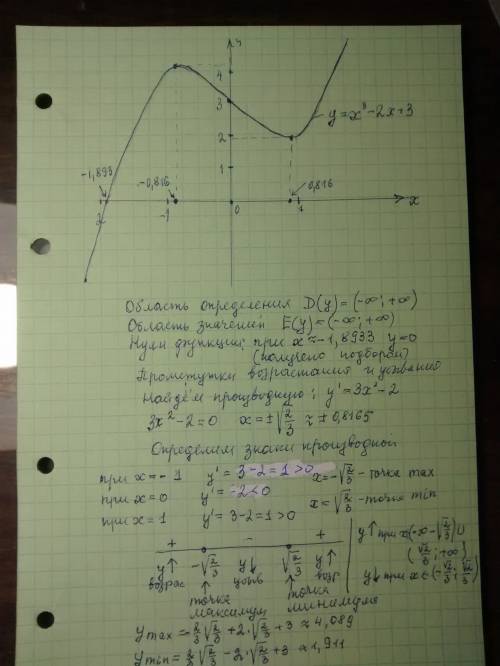 y
4
3
y=x³-2x+3
2
-1,893
1
-0,816
0,816
-2 -1 0 1 x
Область определения D(y)=(-∞; +∞)
Область значений E(y)=(-∞; +∞)
Нули функции; при x≈-1,8933 y=0
(получено подбором)
Промежутки возрастаний и убываний
Найдём производную: y'=3x²-2
3x²-2=0 x=±√2/3 ≈±0,8165
Определим знаки производной
при x=-1 y'=3-2=1>0 x=-√2/3 - точка max
при x=0 y'=-2<0
x=√2/3 - точка min
при x=1 y'=3-2=1>0
+ - + y↑ при x(-∞-√2/3)∪
y↑ -√2/3 y↓ √2/3 y↑ (√2/3; +∞)
возрас убыв возр y↓ при x∈(-√2/3; √2/3)
точка точка
максимум минимума
ymax=-2/3√2/3+2·√2/3+3≈4,089
ymin=2/3√2/3-2·√2/3+3≈1,911